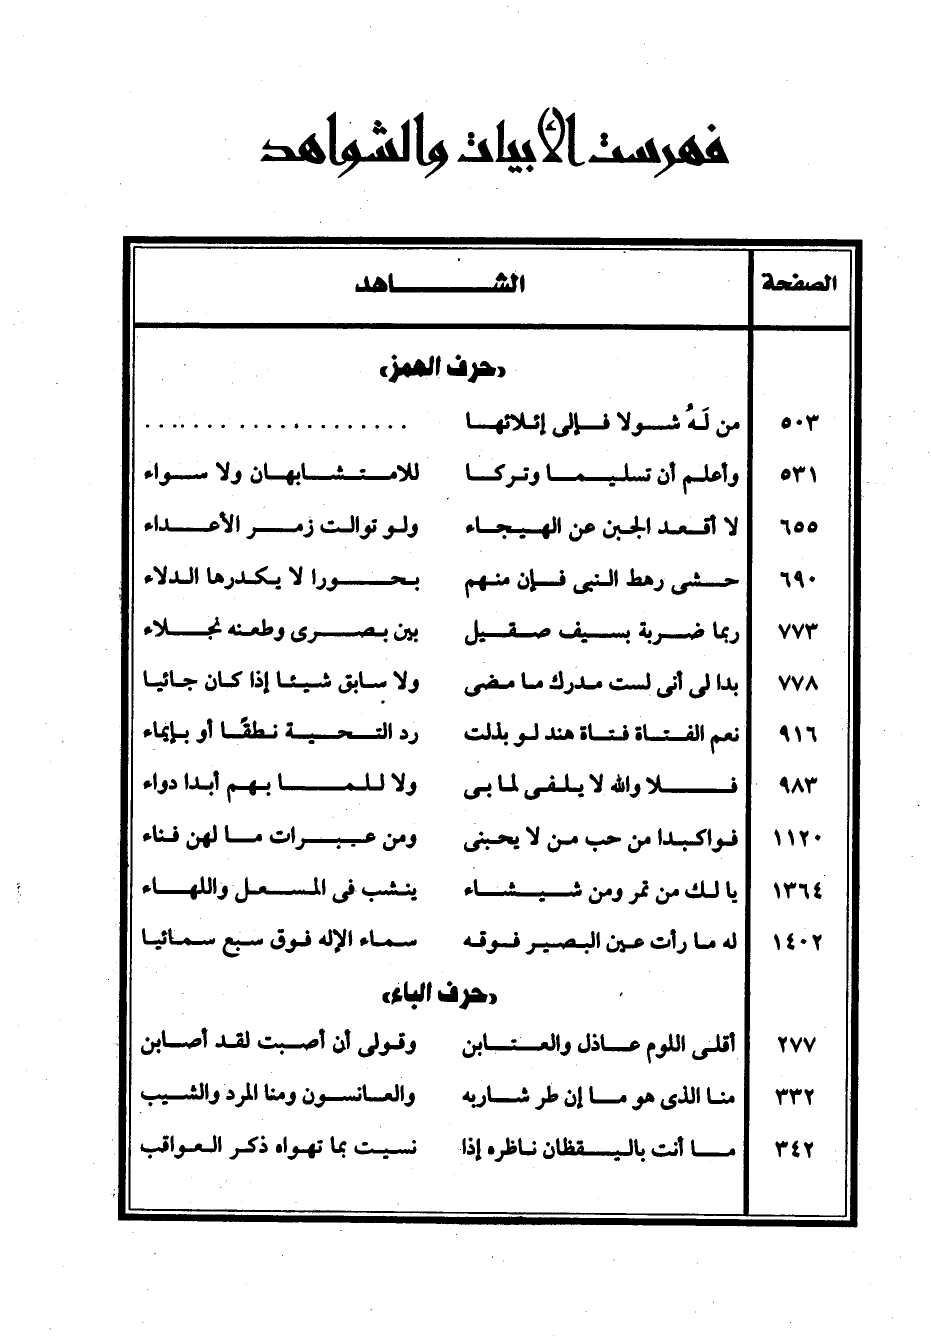 فهرست الأبيات والشواهد
الصفحة الشاهد
«حرف الهمز»
٥٠٣ من لَدُ شولا فإلى إئلائها ....................
٥٣١ وأعلم أن تسليما وتركا للامتشابهان ولا سواء
٦٥٥ لا أقعد الجبن عن الهيجاء ولو توالت زمر الأعداء
٦٩٠ حشى رهط النبى فإن منهم بحورا لا يكدرها الدلاء
٧٧٣ ربما ضربة بسيف صقيل بين بصرى وطعنه نجلاء
٧٧٨ بدا لى أنى لست مدرك ما مضى ولا سابق شيئا إذا كان جائيا
٩١٦ نعم الفتاة فتاة هند لو بذلت رد التحية نطقًا أو بإيماء
٩٨٣ فلا والله لا يلفى لما بى ولا للما بهم أبدا دواء
١١٢٠ فواكبدا من حب من لا يحبنى ومن عبرات ما لهن فناء
١٣٦٤ يا لك من تمر ومن شيشاء ينشب فى المسعل واللهاء
١٤٠٢ له ما رأت عين البصير فوقه سماء الإله فوق سبع سمائيا
«حرف الباء»
٢٧٧ أقلى اللوم عاذل والعتابن وقولى أن أصبت لقد أصابن
٣٣٢ منا الذى هو ما إن طر شاربه والعانسون ومنا المرد والشيب
٣٤٢ ما أنت باليقظان ناظره إذا نسيت بما تهواه ذكر العواقب